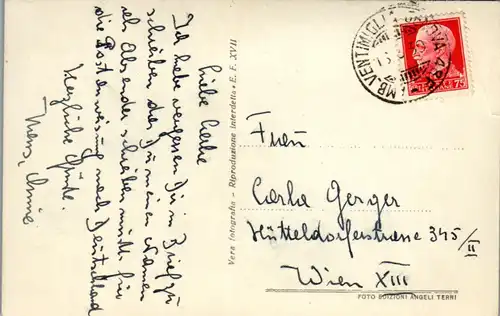 Liebe Carla
Ich habe vergessen Dir im Brief zu
schreiben dass Du meinen Namen
als Absender schreiben musst für
die Postanweisung nach Deutschland
Herzliche Grüsse.
Vera fotografia - Riproduzione interdetta • E. F. XVII
AMB. VENTIMIGLIA
75
Frau
Carla Gerger
Hütteldorferstrasse 345/II
Wien XIII
FOTO EDIZIONI ANGELI TERNI